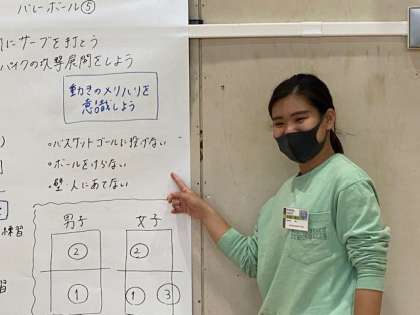 バレーボール⑤
にサーブを打とう
バイクの攻撃展開をしよう
動きのメリハリを
意識しよう
・バスケットゴールに投げない
・ボールをけらない
・壁・人にあてない
練習
男子 女子
② ②
① ① ③
習